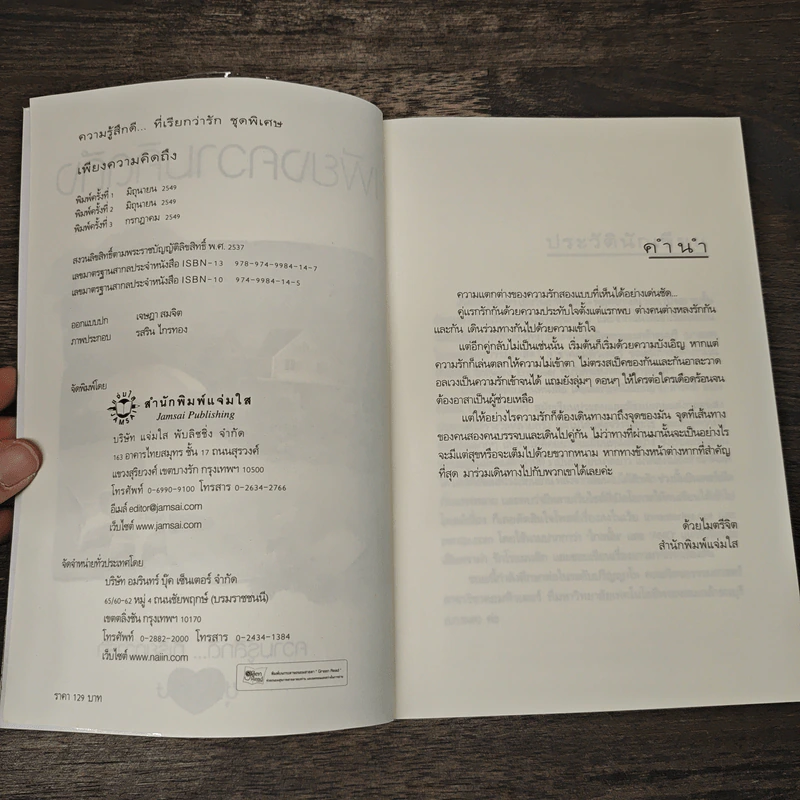 ความรู้สึกดี... ที่เรียกว่ารัก ชุดพิเศษ
เพียงความคิดถึง
พิมพ์ครั้งที่ 1 มิถุนายน 2549
พิมพ์ครั้งที่ 2 มิถุนายน 2549
พิมพ์ครั้งที่ 3 กรกฎาคม 2549
สงวนลิขสิทธิ์ตามพระราชบัญญัติลิขสิทธิ์ พ.ศ. 2537
เลขมาตรฐานสากลประจำหนังสือ ISBN-13 978-974-9984-14-7
เลขมาตรฐานสากลประจำหนังสือ ISBN-10 974-9984-14-5
ออกแบบปก เจษฎา สมจิต
ภาพประกอบ รสริน ไกรทอง
จัดพิมพ์โดย
สำนักพิมพ์แจ่มใส
Jamsai Publishing
บริษัท แจ่มใส พับลิชชิ่ง จำกัด
163 อาคารไทยสมุทร ชั้น 17 ถนนสุรวงศ์
แขวงสุริยวงศ์ เขตบางรัก กรุงเทพฯ 10500
โทรศัพท์ 0-6990-9100 โทรสาร 0-2634-2766
อีเมล์ editor@jamsai.com
เว็บไซต์ www.jamsai.com
จัดจำหน่ายทั่วประเทศโดย
บริษัท อมรินทร์ บุ๊ค เซ็นเตอร์ จำกัด
65/60-62 หมู่ 4 ถนนชัยพฤกษ์ (บรมราชชนนี)
เขตตลิ่งชัน กรุงเทพฯ 10170
โทรศัพท์ 0-2882-2000 โทรสาร 0-2434-1384
เว็บไซต์ www.naiin.com
ราคา 129 บาท
คำนำ
ความแตกต่างของความรักสองแบบที่เห็นได้อย่างเด่นชัด...
คู่แรกรักกันด้วยความประทับใจตั้งแต่แรกพบ ต่างคนต่างหลงรักกัน
และกัน เดินร่วมทางกันไปด้วยความเข้าใจ
แต่อีกคู่กลับไม่เป็นเช่นนั้น เริ่มต้นก็เริ่มด้วยความบังเอิญ หากแต่
ความรักก็เล่นตลกให้ความไม่เข้าตา ไม่ตรงสเป็คของกันและกันอาละวาด
อลเวงเป็นความรักเข้าจนได้ แถมยังลุ่มๆ ดอนๆ ให้ใครต่อใครเดือดร้อนจน
ต้องอาสาเป็นผู้ช่วยเหลือ
แต่ให้อย่างไรความรักก็ต้องเดินทางมาถึงจุดของมัน จุดที่เส้นทาง
ของคนสองคนบรรจบและเดินไปคู่กัน ไม่ว่าทางที่ผ่านมานั้นจะเป็นอย่างไร
จะมีแต่สุขหรือจะเต็มไปด้วยขวากหนาม หากทางข้างหน้าต่างหากที่สำคัญ
ที่สุด มาร่วมเดินทางไปกับพวกเขาได้เลยค่ะ
ด้วยไมตรีจิต
สำนักพิมพ์แจ่มใส